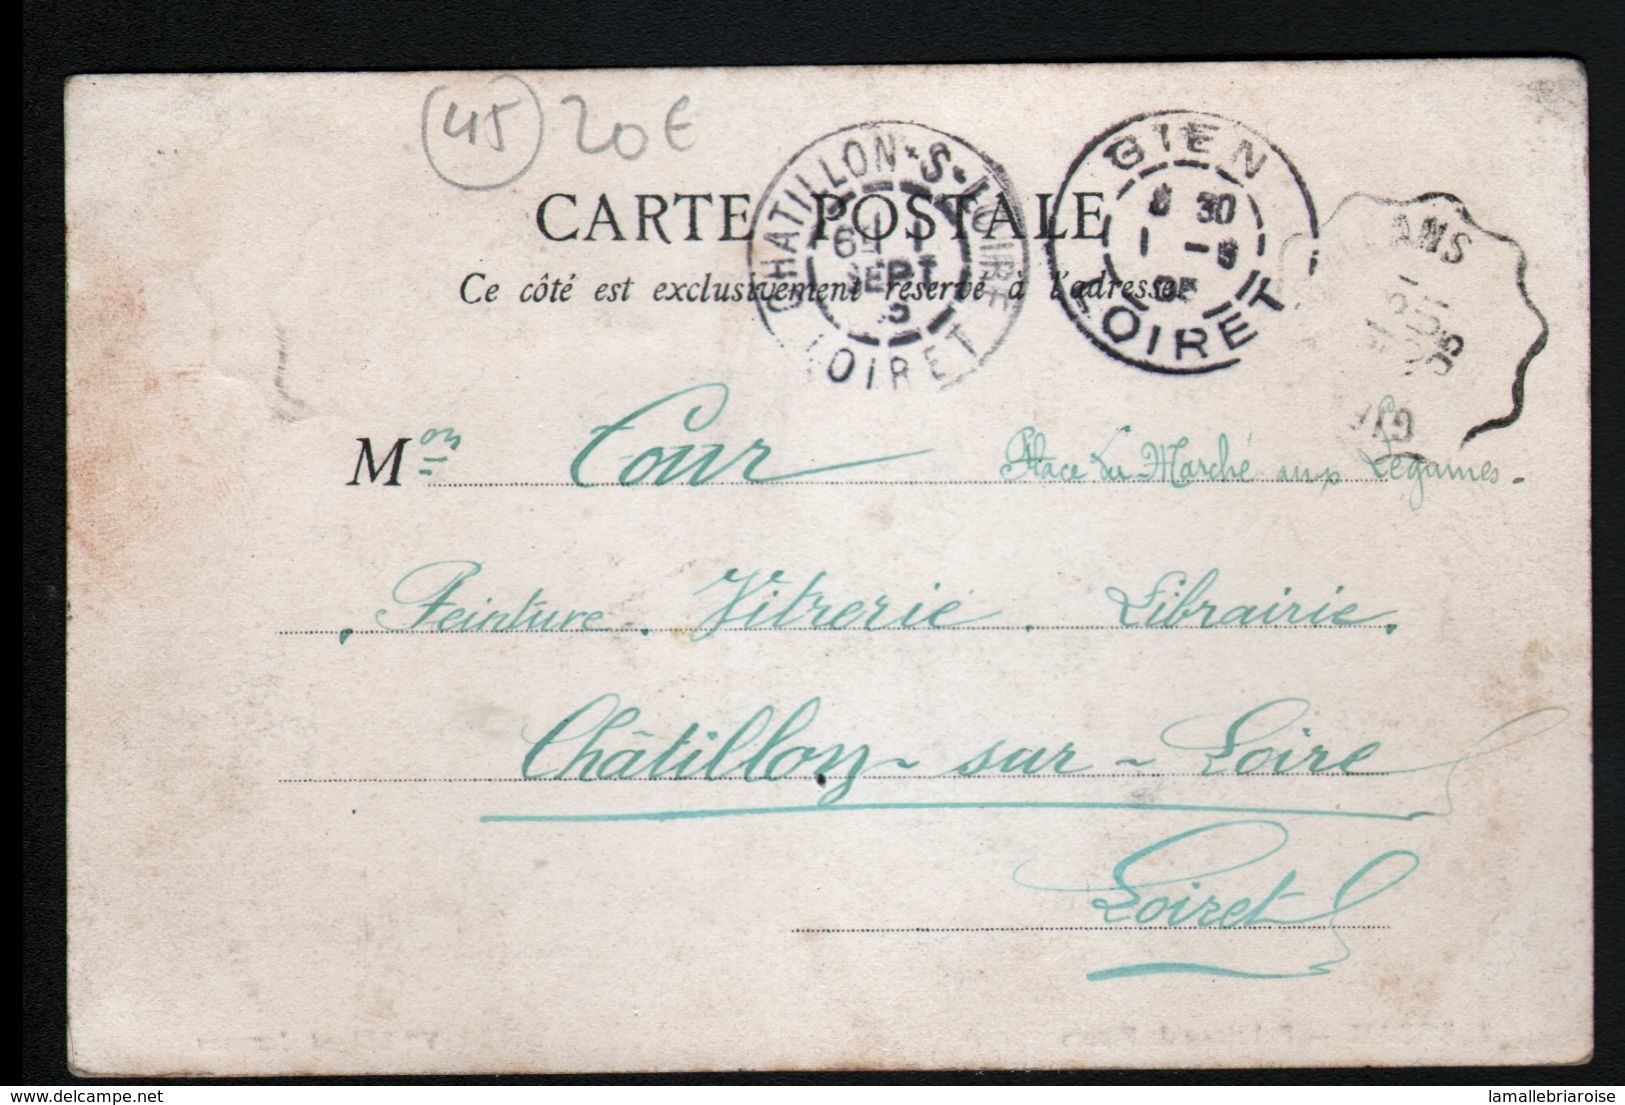 45 20€
CHATILLON-S-LOIRE
6E 1
SEPT
5
LOIRET
GIEN
8 30
1 -9
05
LOIRET
CARTE POSTALE
Ce côté est exclusivement réservé à l'adresse
M on Cour Place du Marché aux Légumes.
. Peinture. Vitrerie. Librairie.
Châtillon-sur-Loire
Loiret
delcampe.net
lamallebriaroise